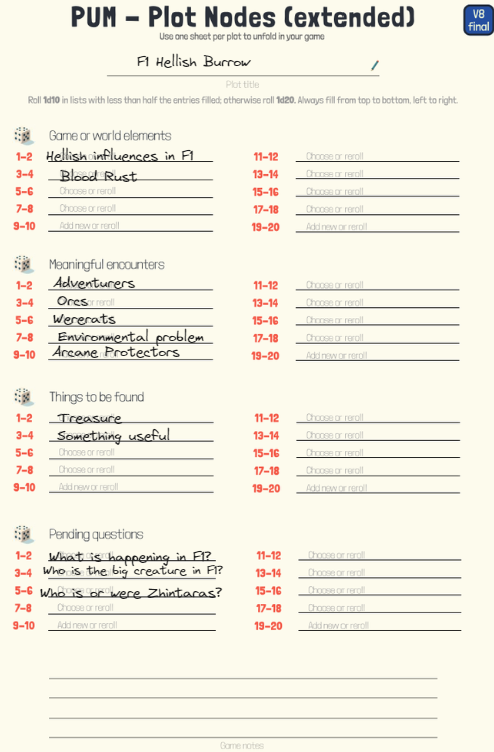 PUM - Plot Nodes (extended)
V8 final
Use one sheet per plot to unfold in your game
F1 Hellish Burrow
Plot title
Roll 1d10 in lists with less than half the entries filled; otherwise roll 1d20. Always fill from top to bottom, left to right.
Game or world elements
1-2 Hellish influences in F1
3-4 Blood Rust
5-6 Choose or reroll
7-8 Choose or reroll
9-10 Add new or reroll
11-12 Choose or reroll
13-14 Choose or reroll
15-16 Choose or reroll
17-18 Choose or reroll
19-20 Add new or reroll
Meaningful encounters
1-2 Adventurers
3-4 Orcs
5-6 Wererats
7-8 Environmental problem
9-10 Arcane Protectors
11-12 Choose or reroll
13-14 Choose or reroll
15-16 Choose or reroll
17-18 Choose or reroll
19-20 Add new or reroll
Things to be found
1-2 Treasure
3-4 Something useful
5-6 Choose or reroll
7-8 Choose or reroll
9-10 Add new or reroll
11-12 Choose or reroll
13-14 Choose or reroll
15-16 Choose or reroll
17-18 Choose or reroll
19-20 Add new or reroll
Pending questions
1-2 What is happening in F1?
3-4 Who is the big creature in F1?
5-6 Who is or were Zhintaras?
7-8 Choose or reroll
9-10 Add new or reroll
11-12 Choose or reroll
13-14 Choose or reroll
15-16 Choose or reroll
17-18 Choose or reroll
19-20 Add new or reroll
Game notes